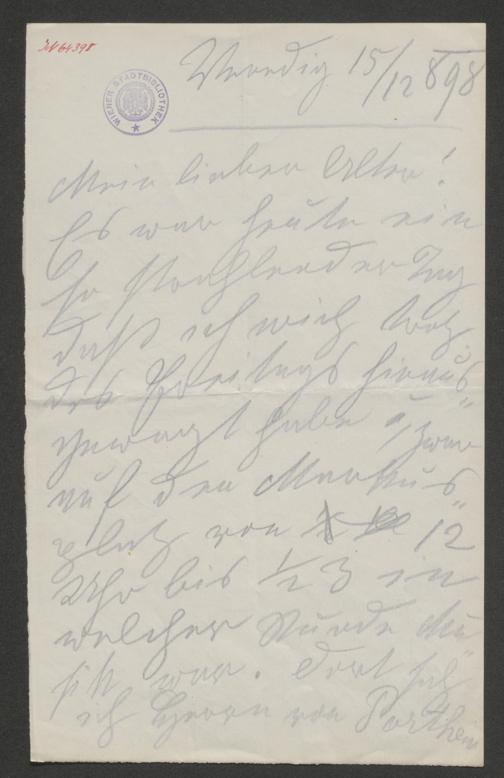 IN 64398
WIENER STADTBIBLIOTHEK
Venedig 15/12 898
Mein lieber Alter!
Es war heute ein
so strahlender Tag
daß ich mich trotz
des Freitags hinaus
gewagt habe u. zwar
auf den Markus
platz von 12
Uhr bis 1/2 3 in
welcher Stunde Mu
sik war. Dort sah
ich Herrn von Porthem